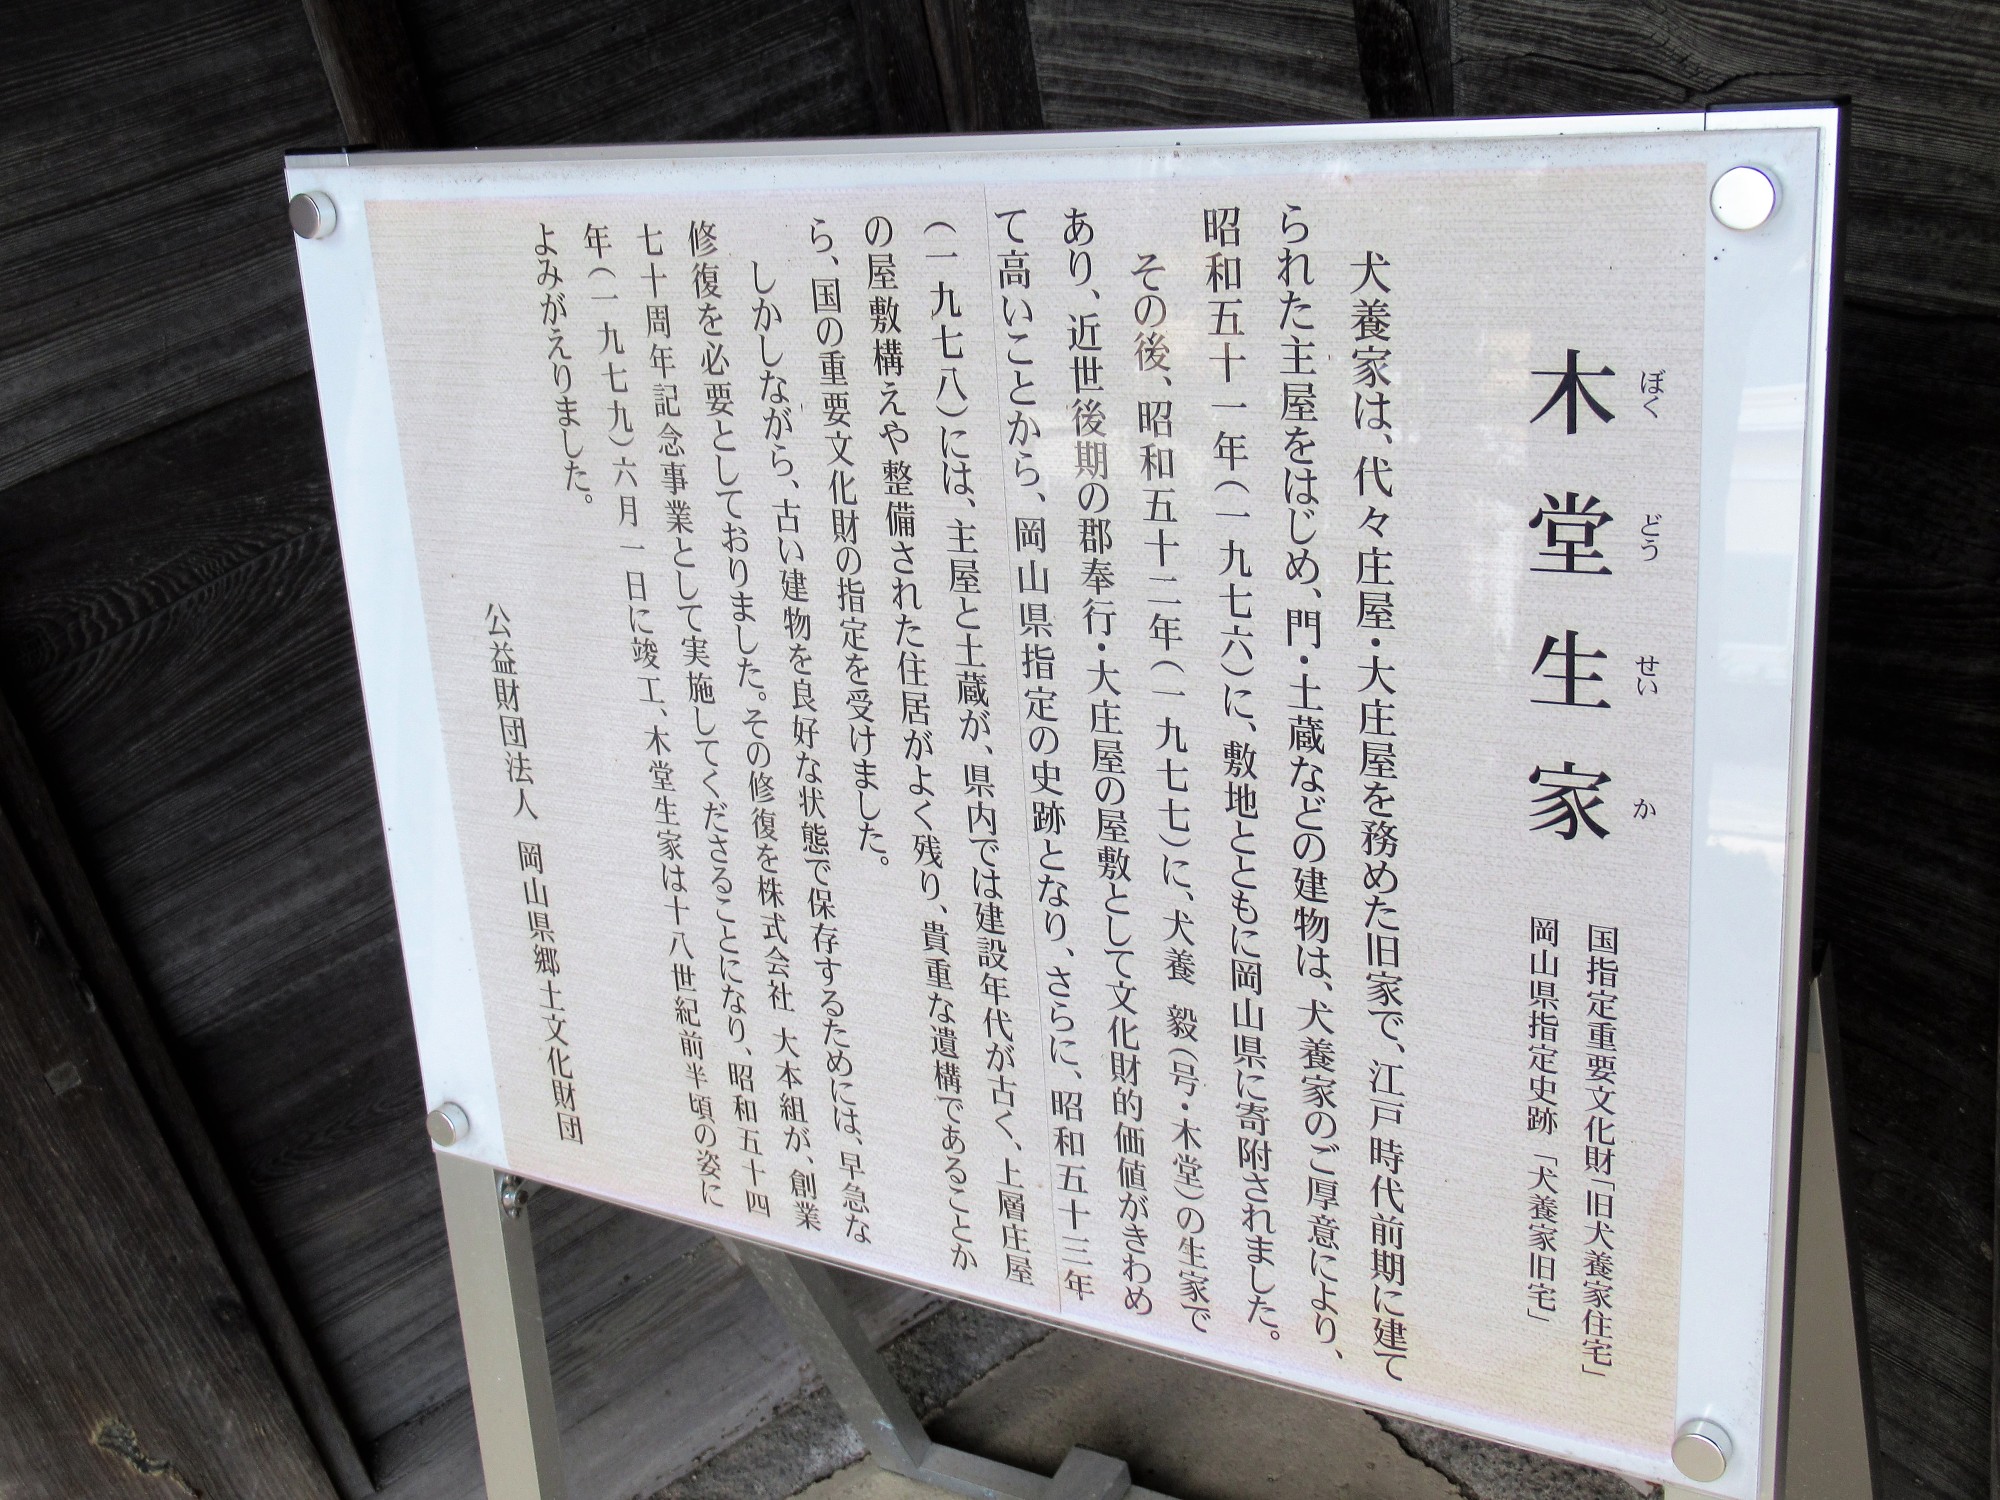 木堂生家
ぼくどうせいか
国指定重要文化財「旧犬養家住宅」
岡山県指定史跡「犬養家旧宅」
犬養家は、代々庄屋・大庄屋を務めた旧家で、江戸時代前期に建て
られた主屋をはじめ、門・土蔵などの建物は、犬養家のご厚意により、
昭和五十一年（一九七六）に、敷地とともに岡山県に寄附されました。
その後、昭和五十二年（一九七七）に、犬養 毅（号・木堂）の生家で
あり、近世後期の郡奉行・大庄屋の屋敷として文化財的価値がきわめ
て高いことから、岡山県指定の史跡となり、さらに、昭和五十三年
（一九七八）には、主屋と土蔵が、県内では建設年代が古く、上層庄屋
の屋敷構えや整備された住居がよく残り、貴重な遺構であることか
ら、国の重要文化財の指定を受けました。
しかしながら、古い建物を良好な状態で保存するためには、早急な
修復を必要としておりました。その修復を株式会社 大本組が、創業
七十周年記念事業として実施してくださることになり、昭和五十四
年（一九七九）六月一日に竣工、木堂生家は十八世紀前半頃の姿に
よみがえりました。
公益財団法人 岡山県郷土文化財団